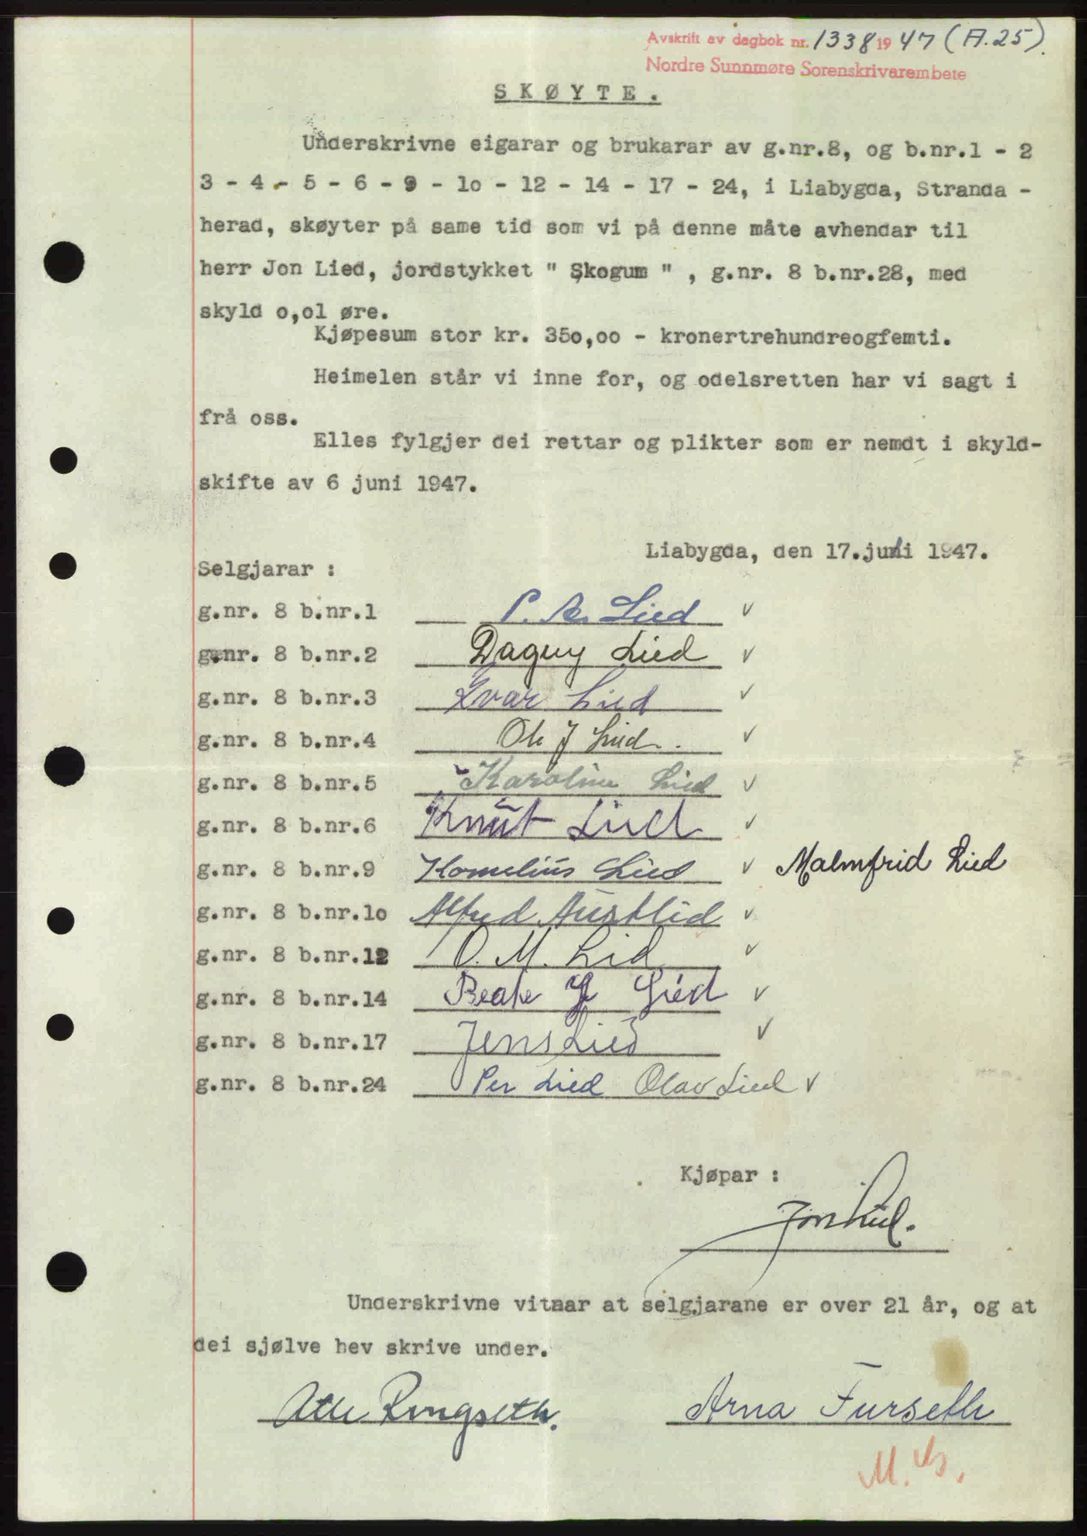 Avskrift av dagbok nr. 1338 1947 (A.25).
Nordre Sunnmøre Sorenskrivarembete
SKØYTE.
Underskrivne eigarar og brukarar av g.nr.8, og b.nr.1 - 2
3 - 4 - 5 - 6 - 9 - 1o - 12 - 14 - 17 - 24, i Liabygda, Stranda -
herad, skøyter på same tid som vi på denne måte avhendar til
herr Jon Lied, jordstykket " Skogum " , g.nr. 8 b.nr.28, med
skyld o,o1 øre.
Kjøpesum stor kr. 35o,oo - kronertrehundreogfemti.
Heimelen står vi inne for, og odelsretten har vi sagt i
frå oss.
Elles fylgjer dei rettar og plikter som er nemdt i skyld-
skifte av 6 juni 1947.
Liabygda, den 17.juni 1947.
Selgjarar :
g.nr. 8 b.nr.1 P. A. Lied v
g.nr. 8 b.nr.2 Dagny Lied v
g.nr. 8 b.nr.3 Ivar Lied v
g.nr. 8 b.nr.4 Ole J Lied. v
g.nr. 8 b.nr.5 Karoline Lied v
g.nr. 8 b.nr.6 Knut Lied v
g.nr. 8 b.nr.9 Kornelius Lied v Malmfrid Lied
g.nr. 8 b.nr.1o Alfred Austlid v
g.nr. 8 b.nr.12 O. M. Lid v
g.nr. 8 b.nr.14 Beate Lied v
g.nr. 8 b.nr.17 Jens Lied v
g.nr. 8 b.nr.24 Per Lied Olav Lied v
Kjøpar :
Jon Lied.
Underskrivne vitnar at selgjarane er over 21 år, og at
dei sjølve hev skrive under.
Atle Ringseth. Arna Furseth